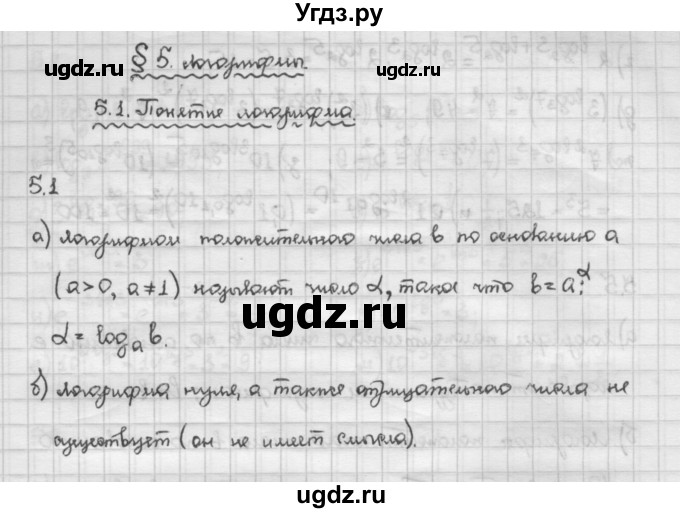 Угдз.ру
§ 5. Логарифмы.
ugdz.ru
ugdz.ru
5.1. Понятие логарифма.
5.1
а) Логарифмом положительного числа b по основанию a
(a>0, a≠1) называют число α, такое что b=a^α:
α = log_a b.
ugdz.ru
б) Логарифма нуля, а также отрицательного числа не
существует (он не имеет смысла).
ugdz.ru
ugdz.ru
Угдз.ру